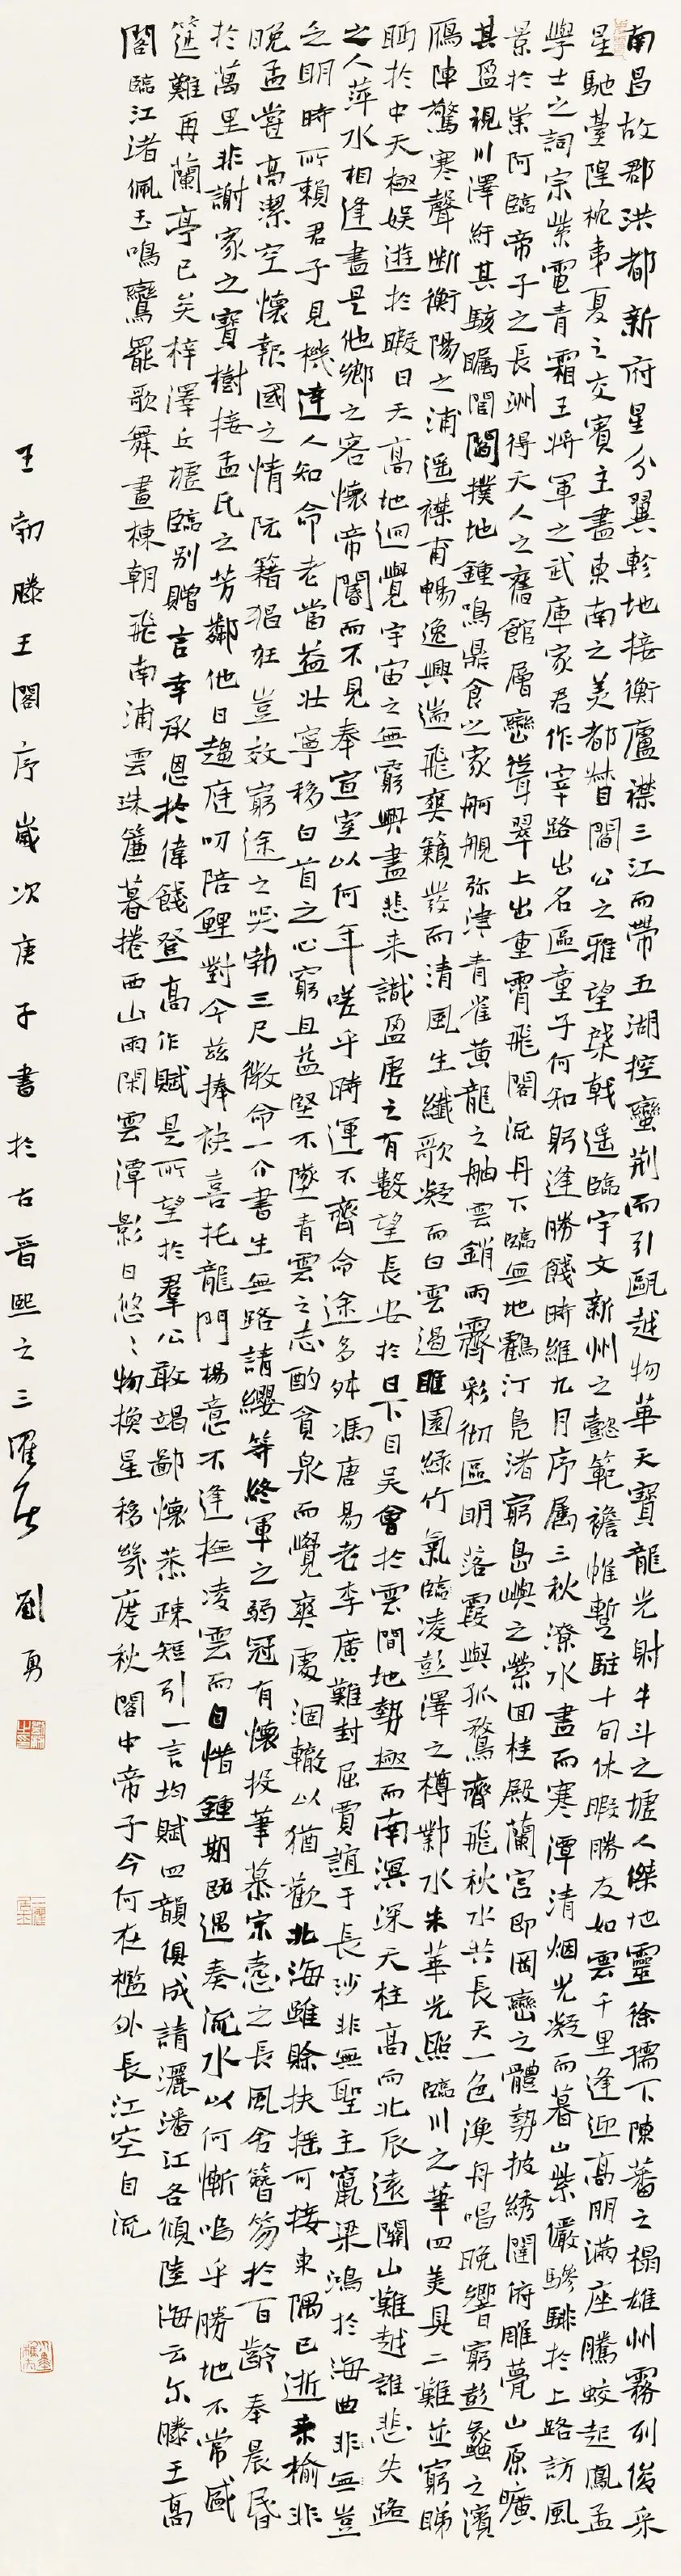 南昌故郡洪都新府星分翼軫地接衡廬襟三江而帶五湖控蠻荊而引甌越物華天寶龍光射牛斗之墟人傑地靈徐孺下陳蕃之榻雄州霧列俊采
星馳臺隍枕夷夏之交賓主盡東南之美都督閻公之雅望棨戟遥臨宇文新州之懿範襜帷暫駐十旬休暇勝友如雲千里逢迎高朋滿座騰蛟起鳳孟
學士之詞宗紫電青霜王將軍之武庫家君作宰路出名區童子何知躬逢勝餞時維九月序属三秋潦水盡而寒潭清烟光凝而暮山紫儼驂騑於上路訪風
景於崇阿臨帝子之長洲得天人之舊館層巒聳翠上出重霄飛閣流丹下臨無地鶴汀鳧渚窮島嶼之縈回桂殿蘭宮即岡巒之體勢披綉闥俯雕甍山原曠
其盈視川澤紆其駭矚閭閻撲地鍾鳴鼎食之家舸艦弥津青雀黃龍之舳雲銷雨霽彩徹區明落霞與孤鶩齊飛秋水共長天一色漁舟唱晚響窮彭蠡之濱
鴈陣驚寒聲斷衡陽之浦遥襟甫暢逸興遄飛爽籟發而清風生纖歌凝而白雲遏睢園綠竹氣臨凌彭澤之樽鄴水朱華光照臨川之筆四美具二難並窮睇
眄於中天極娛遊於暇日天高地迥覺宇宙之無窮興盡悲来識盈虛之有數望長安於日下目吳會於雲間地勢極而南溟深天柱高而北辰遠關山難越誰悲失路
之人萍水相逢盡是他鄉之客懷帝閽而不見奉宣室以何年嗟乎時運不齊命途多舛馮唐易老李廣難封屈賈誼于長沙非無聖主竄梁鴻於海曲非無豈
乏明時所賴君子見機達人知命老當益壯寧移白首之心窮且益堅不墜青雲之志酌貪泉而覺爽處涸轍以猶歡北海雖賒扶搖可接東隅已逝桑榆非
晚孟嘗高潔空懷報國之情阮籍猖狂豈效窮途之哭勃三尺微命一介書生無路請纓等終軍之弱冠有懷投筆慕宗愨之長風舍簪笏於百齡奉晨昏
於萬里非謝家之寶樹接孟氏之芳鄰他日趨庭叨陪鯉對今茲捧袂喜托龍門楊意不逢撫凌雲而自惜鍾期既遇奏流水以何慚嗚乎勝地不常盛
筵難再蘭亭已矣梓澤丘墟臨别贈言幸承恩於偉餞登高作賦是所望於羣公敢竭鄙懷恭疎短引一言均賦四韻俱成請灑潘江各傾陸海云尔滕王高
閣臨江渚佩玉鳴鸞罷歌舞畫棟朝飛南浦雲珠簾暮捲西山雨閑雲潭影日悠〻物換星移幾度秋閣中帝子今何在檻外長江空自流
王勃滕王閣序歲次庚子書於古晋熙之三躍居劉勇